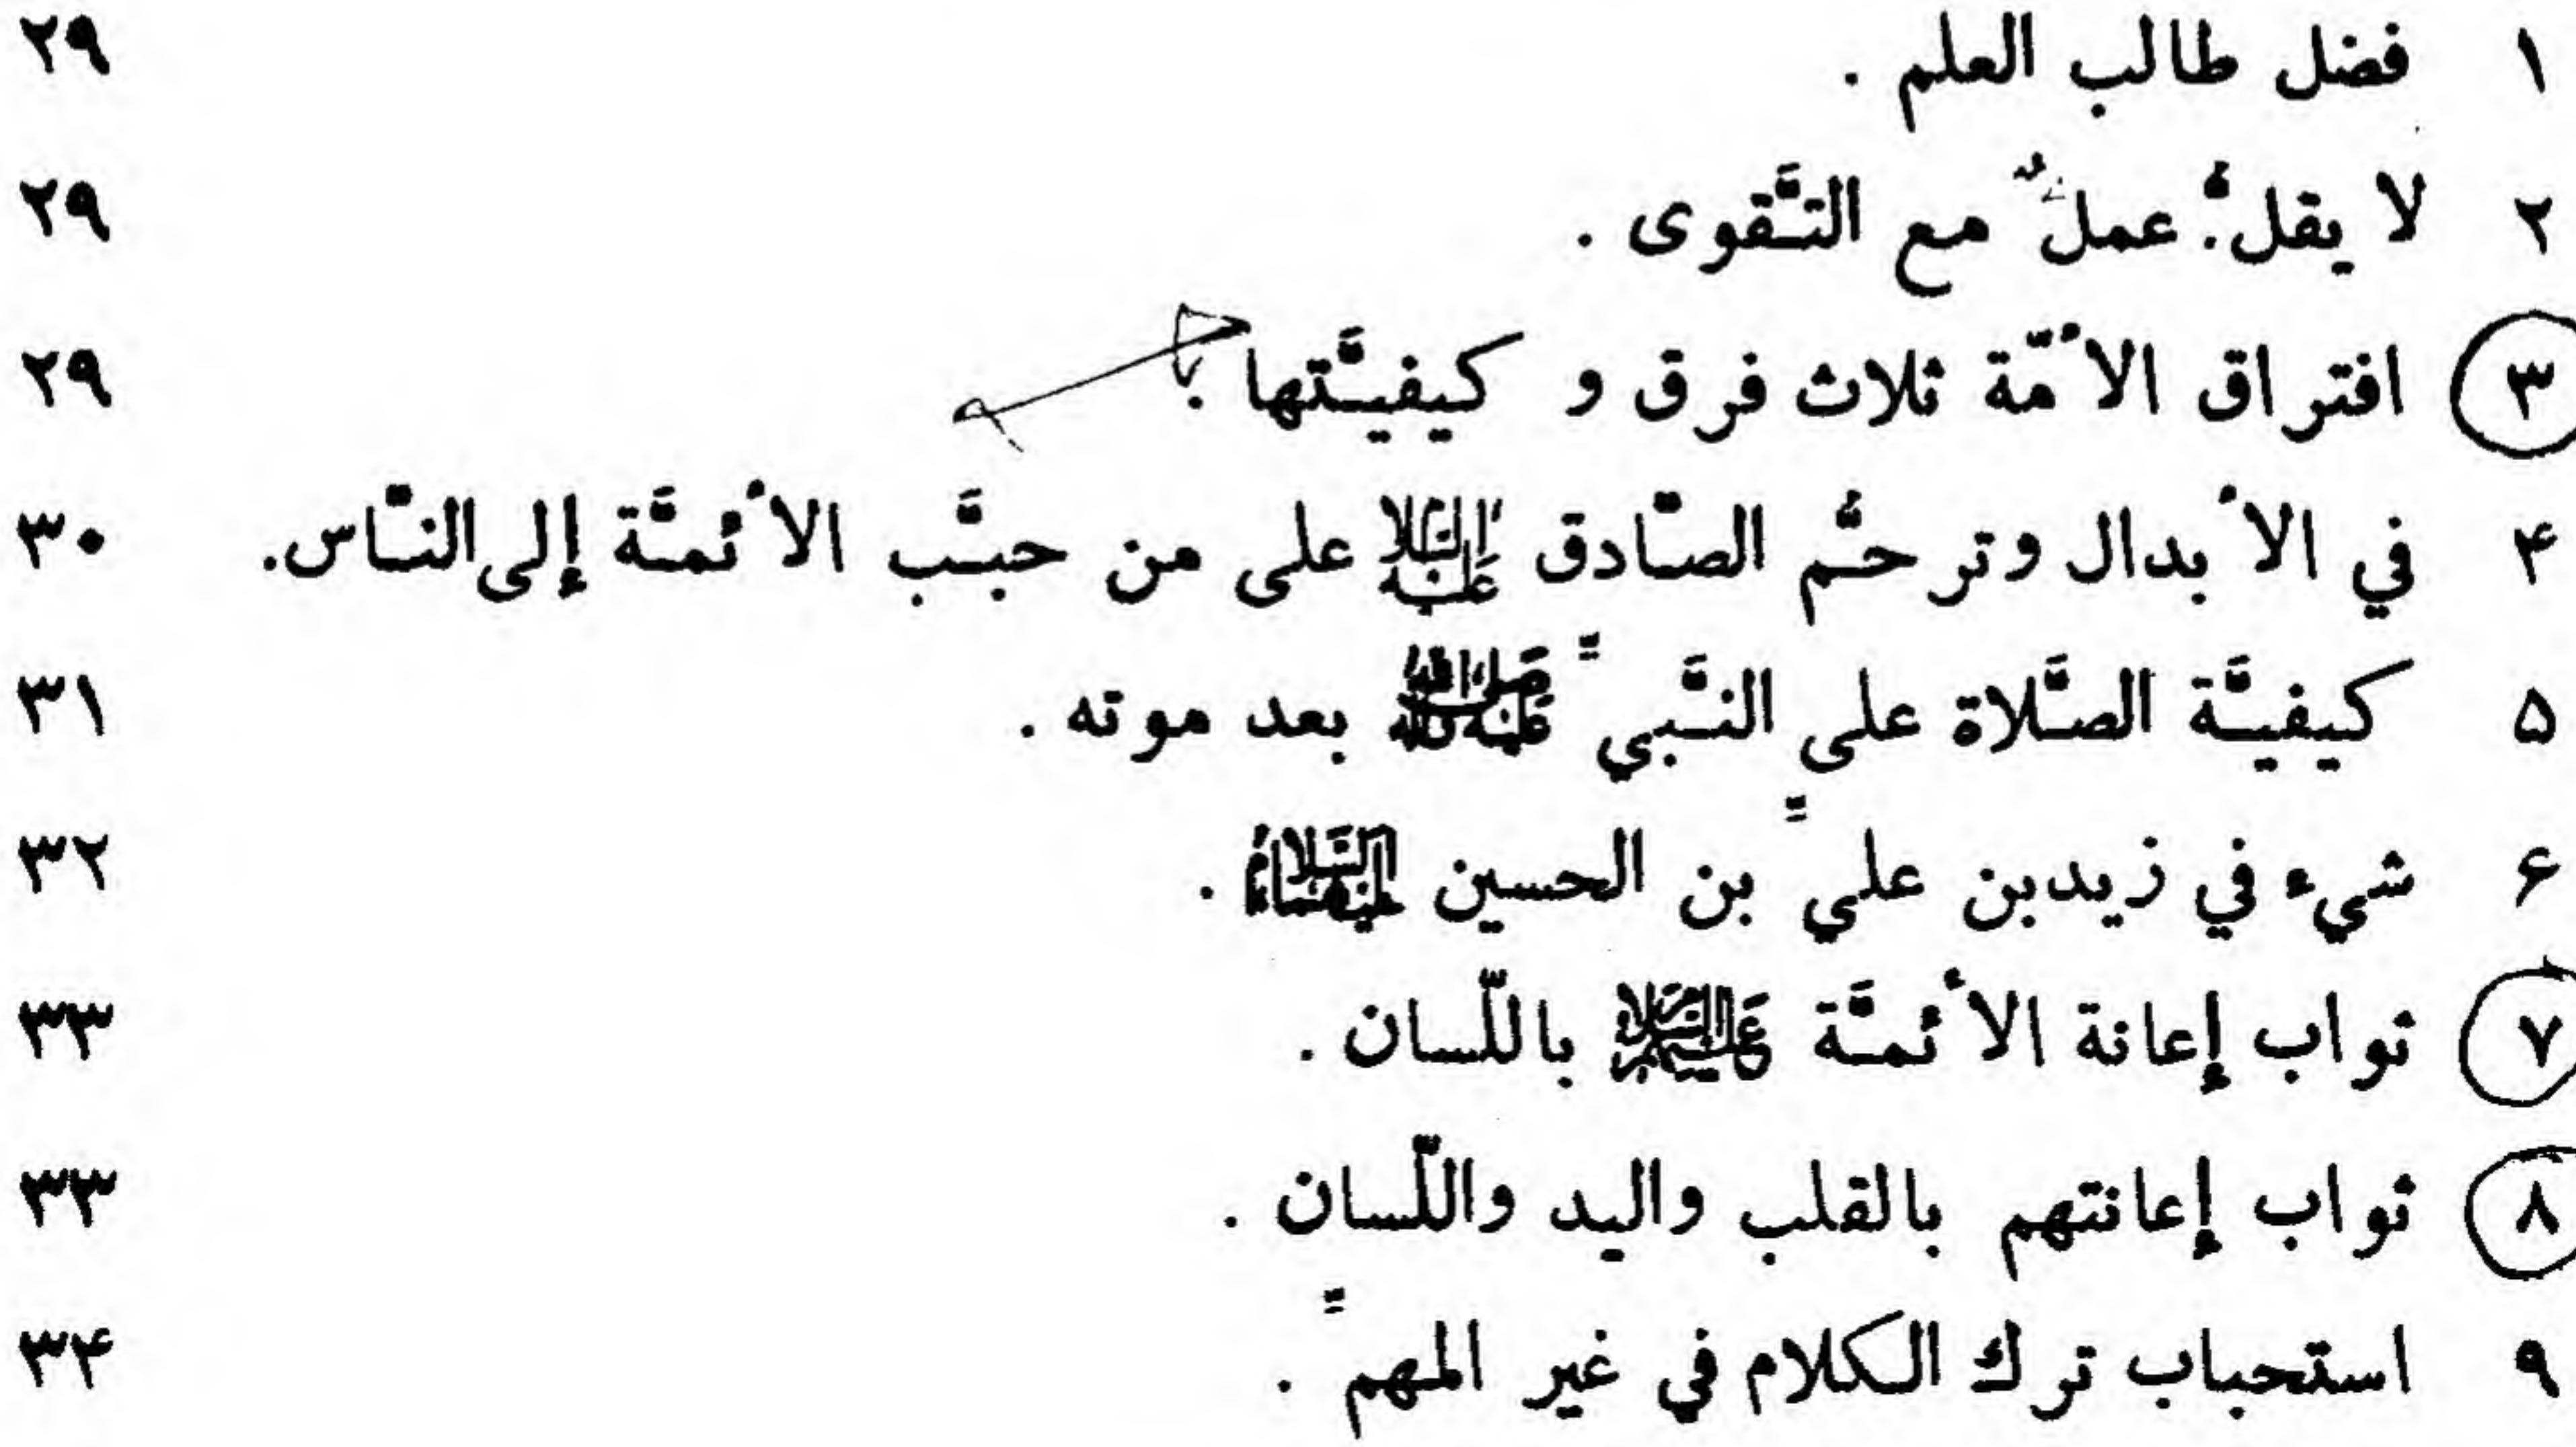 ١ فضل طالب العلم . ٢٩
٢ لا يقلُّ عملٌ مع التَّقوى . ٢٩
٣ افتراق الأمّة ثلاث فرق و كيفيَّتها . ٢٩
۴ في الأبدال وترحُّم الصّادق عليه السلام على من حبَّب الأئمَّة إلى النّاس. ٣٠
۵ كيفيَّة الصَّلاة على النَّبيِّ صلى الله عليه وآله بعد موته . ٣١
۶ شيء في زيدبن عليِّ بن الحسين عليهما السلام . ٣٢
٧ ثواب إعانة الأئمَّة عليهم السلام باللّسان . ٣٣
٨ ثواب إعانتهم بالقلب واليد واللّسان . ٣٣
٩ استحباب ترك الكلام في غير المهمِّ . ٣۴